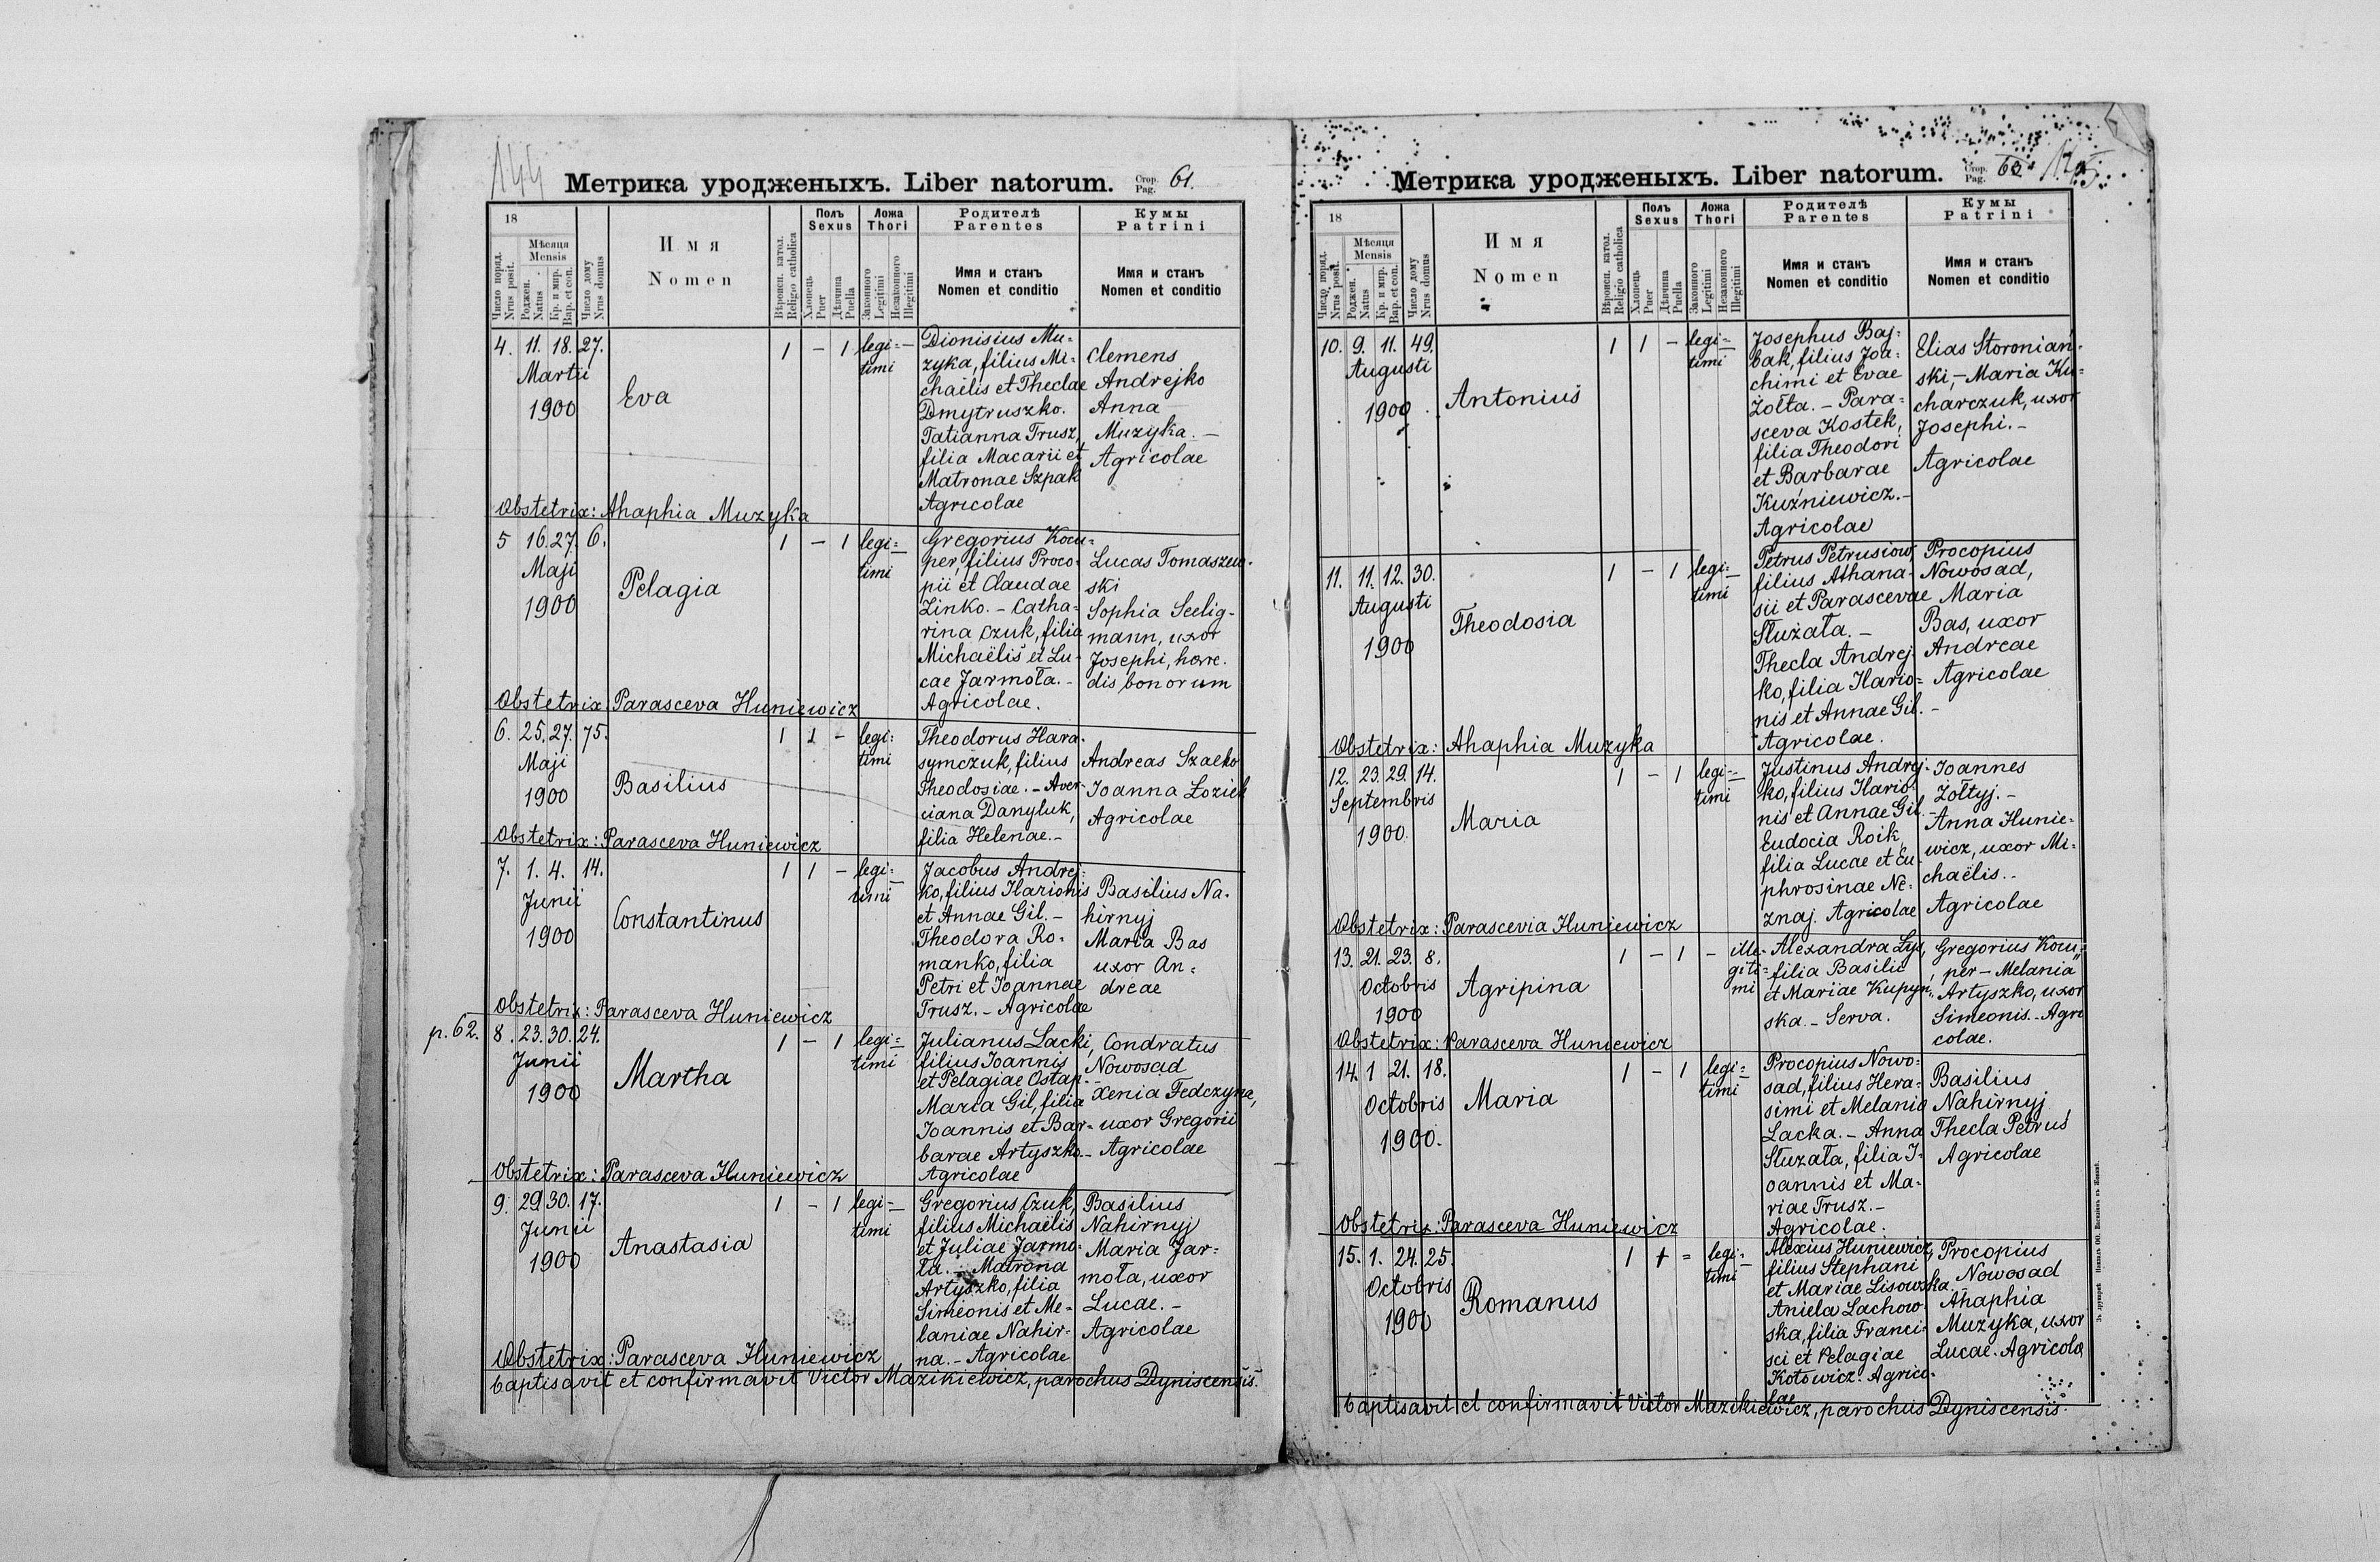 144
Метрика уродженыхъ. Liber natorum. Стор. Pag. 61.
18
Число поряд. Nrus posit.
Мѣсяця Mensis
Роджен. Natus
Кр. и мир. Bap. et con.
Число дому Nrus domus
Имя
Nomen
Вѣроисп. катол. Religio catholica
Полъ Sexus
Хлопець Puer
Дѣвчина Puella
Ложа Thori
Законного Legitimi
Незаконного Illegitimi
Родителѣ
Parentes
Имя и станъ
Nomen et conditio
Кумы
Patrini
Имя и станъ
Nomen et conditio
4. 11. 18. 27.
Martii
1900
Eva
1 – 1 legi=
timi
Dionisius Mu-
zyka, filius Mi-
chaëlis et Theclae
Dmytruszko.
Tatianna Trusz,
filia Macarii et
Matronae Szpak
Agricolae
Clemens
Andrejko
Anna
Muzyka. –
Agricolae
Obstetrix: Ahaphia Muzyka
5 16. 27. 6.
Maji
1900
Pelagia
1 – 1 legi=
timi
Gregorius Kow-
per, filius Proco-
pii et Claudae
Zinko. – Catha-
rina Czuk, filia
Michaëlis et Lu-
cae Jarmoła. –
Agricolae.
Lucas Tomaszew-
ski
Sophia Seelig-
mann, uxor
Josephi, haere-
dis bonorum
Obstetrix: Parasceva Huniewicz
6. 25. 27. 75.
Maji
1900
Basilius
1 1 – legi=
timi
Theodorus Hara-
symczuk, filius
Theodosiae. – Aver-
ciana Danyluk,
filia Helenae. –
Andreas Szaeko
Joanna Łoziek
Agricolae
Obstetrix: Parasceva Huniewicz
7. 1. 4. 14.
Junii
1900
Constantinus
1 1 – legi=
timi
Jacobus Andrej-
ko, filius Ilarionis
et Annae Gil. –
Theodora Ro-
manko, filia
Petri et Joannae
Trusz. – Agricolae
Basilius Na-
hirnyj
Maria Bas
uxor An-
dreae
Obstetrix: Parasceva Huniewicz
p. 62. 8. 23. 30. 24.
Junii
1900
Martha
1 – 1 legi=
timi
Julianus Lacki,
filius Joannis
et Pelagiae Ostap. –
Maria Gil, filia
Joannis et Bar-
barae Artyszko. –
Agricolae
Condratus
Nowosad
Xenia Fedczyna,
uxor Gregorii
Agricolae
Obstetrix: Parasceva Huniewicz
9. 29. 30. 17.
Junii
1900
Anastasia
1 – 1 legi=
timi
Gregorius Czuk,
filius Michaëlis
et Juliae Jarmo-
ła. – Matrona
Artyszko, filia
Simeonis et Me-
laniae Nahir-
na. – Agricolae
Basilius
Nahirnyj
Maria Jar-
moła, uxor
Lucae. –
Agricolae
Obstetrix: Parasceva Huniewicz
baptisavit et confirmavit Victor Mazikiewicz, parochus Dyniscensis.
Метрика уродженыхъ. Liber natorum. Стор. Pag. 63.
18
Число поряд. Nrus posit.
Мѣсяця Mensis
Роджен. Natus
Кр. и мир. Bap. et con.
Число дому Nrus domus
Имя
Nomen
Вѣроисп. катол. Religio catholica
Полъ Sexus
Хлопець Puer
Дѣвчина Puella
Ложа Thori
Законного Legitimi
Незаконного Illegitimi
Родителѣ
Parentes
Имя и станъ
Nomen et conditio
Кумы
Patrini
Имя и станъ
Nomen et conditio
10. 9. 11. 49.
Augusti
1900
Antonius
1 1 – legi=
timi
Josephus Baj-
bak, filius Joa-
chimi et Evae
Żołta. – Para-
sceva Kostek,
filia Theodori
et Barbarae
Kuźniewicz. –
Agricolae
Elias Storoniań-
ski, – Maria Ku-
charczuk, uxor
Josephi. –
Agricolae
11. 11. 12. 30.
Augusti
1900
Theodosia
1 – 1 legi=
timi
Petrus Petrusiow,
filius Athana-
sii et Parascevae
Służała. –
Thecla Andrej-
ko, filia Ilario-
nis et Annae Gil. –
Agricolae.
Procopius
Nowosad,
Maria
Bas, uxor
Andreae
Agricolae
Obstetrix: Ahaphia Muzyka
12. 23. 29. 14.
Septembris
1900.
Maria
1 – 1 legi=
timi
Justinus Andrej-
ko, filius Ilario-
nis et Annae Gil. –
Eudocia Roik,
filia Lucae et Eu-
phrosinae Ne-
znaj. Agricolae
Joannes
Żołtyj. –
Anna Hunie-
wicz, uxor Mi-
chaëlis. –
Agricolae
Obstetrix: Parascevia Huniewicz
13. 21. 23. 8.
Octobris
1900
Agripina
1 – 1 – ille-
giti=
mi
Alexandra Lys,
filia Basilii
et Mariae Kupyn-
ska. – Serva.
Gregorius Kow-
per – Melania
Artyszko, uxor
Simeonis. – Agri
colae.
Obstetrix: Parasceva Huniewicz
14. 1 21. 18.
Octobris
1900.
Maria
1 – 1 legi=
timi
Procopius Nowo-
sad, filius Hera-
simi et Melania
Lacka. – Anna
Służała, filia J-
oannis et Ma-
riae Trusz. –
Agricolae.
Basilius
Nahirnyj
Thecla Petruś
Agricolae
Obstetrix: Parasceva Huniewicz
15. 1. 24. 25.
Octobris
1900
Romanus
1 1 = legi=
timi
Alexius Huniewicz,
filius Stephani
et Mariae Lisowska. –
Aniela Lachow-
ska, filia Franci-
sci et Pelagiae
Kotowicz. Agrico-
lae
Procopius
Nowosad
Ahaphia
Muzyka, uxor
Lucae. Agricolae
baptisavit et confirmavit Victor Mazikiewicz, parochus Dyniscensis.